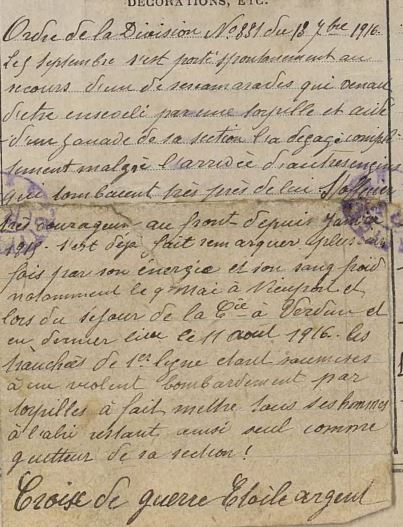 DÉCORATIONS, ETC.
Ordre de la Division No 851 du 13 7bre 1916.
Le 5 septembre s'est porté spontanément au
secours d'un de ses camarades qui venait
d'être enseveli par une torpille et aidé
d'un zouave de sa section l'a dégagé complè
tement malgré l'arrivée d'autres engins
qui tombaient très près de lui.
très courageux au front depuis Janvier
1915. s'est déjà fait remarquer plusieurs
fois par son énergie et son sang froid
notamment le 9 mai à Nieuport et
lors du séjour de la Cie à Verdun et
en dernier lieu le 11 aout 1916. les
tranchées de 1ere ligne étant soumises
à un violent bombardement par
torpilles à fait mettre tous ses hommes
à l'abri restant ainsi seul comme
guetteur de sa section !
Croix de guerre Etoile argent